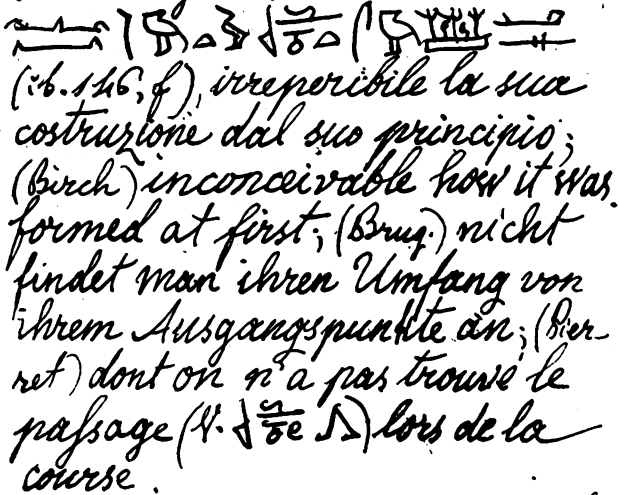 (ib. 146, f), irreperibile la sua
costruzione dal suo principio;
(Birch) inconceivable how it was
formed at first; (Brug.) nicht
findet man ihren Umfang von
ihrem Ausgangspunkte an; (Pier-
ret) dont on n'a pas trouvé le
passage (V. ) lors de la
course.